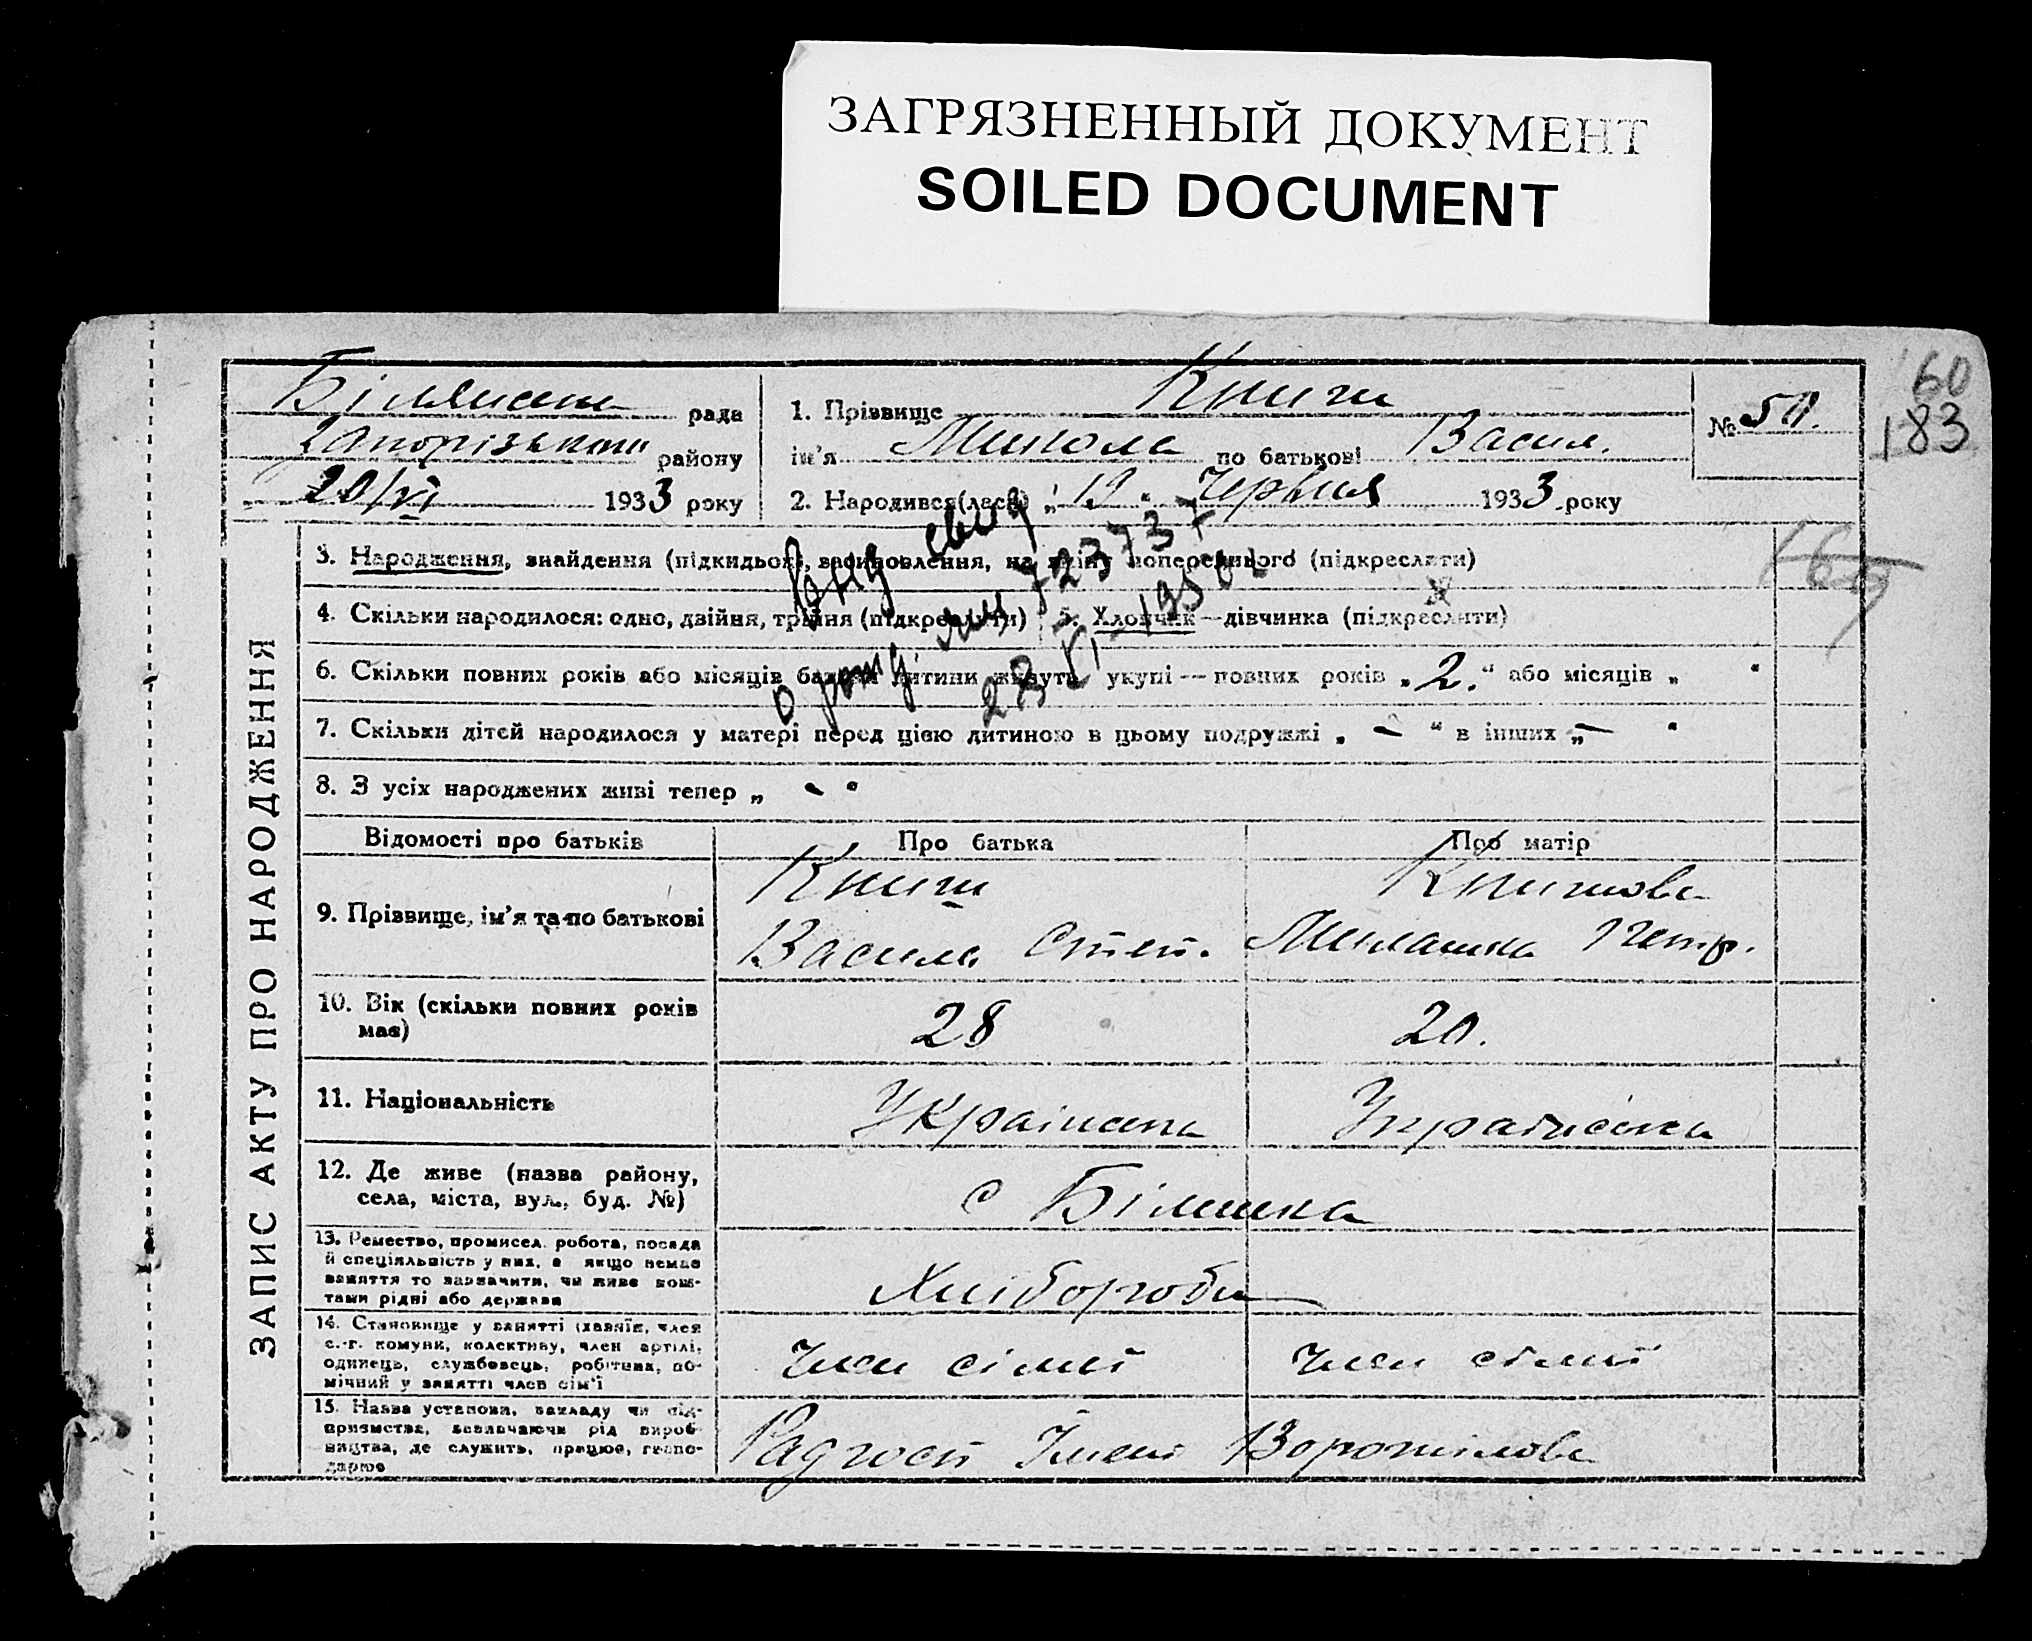 ЗАГРЯЗНЕННЫЙ ДОКУМЕНТ
SOILED DOCUMENT
60
183
ЗАПИС АКТУ ПРО НАРОДЖЕННЯ
рада
району
20/VI 1933 року
1. Прізвище Книш
ім'я Микола по батькові Васил.
2. Народився(лася) „19" Червня 1933 року
№ 50.
3. Народження, знайдення (підкидьок), всиновлення, на зміну попереднього (підкреслити)
4. Скільки народилося: одно, двійня, трійня (підкреслити)
5. Хлопчик—дівчинка (підкреслити)
6. Скільки повних років або місяців батьки дитини живуть укупі — повних років „2." або місяців „ "
7. Скільки дітей народилося у матері перед цією дитиною в цьому подружжі „ – " в інших „ – "
8. З усіх народжених живі тепер „ – "
Відомості про батьків
Про батька
Про матір
9. Прізвище, ім'я та по батькові
Книш
Василь Степ.
Книшова
Милашка Петр.
10. Вік (скільки повних років має)
28
20.
11. Національність
Українець
Українка
12. Де живе (назва району,
села, міста, вул., буд. №)
с Біляника
13. Ремество, промисел, робота, посада
й спеціяльність у них, а якщо немає
заняття то зазначити, чи живе кош-
тами рідні або держави
Хлібороби
14. Становище у занятті (хазяїн, член
с.-г. комуни, колективу, член артілі,
одинець, службовець, робітник, по-
мічний у занятті член сім'ї
член сімї
член сімї
15. Назва установи, закладу чи під-
приємства, зазначаючи рід вироб-
ництва, де служить, працює, госпо-
дарює
Радгосп Імені Ворошілова